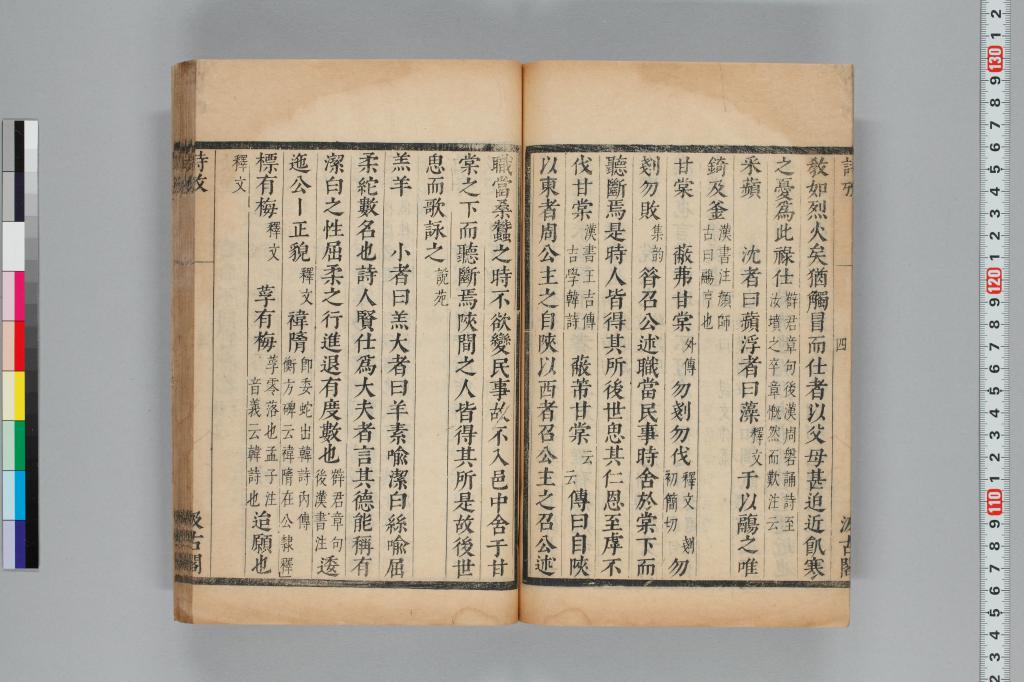 敎如烈火矣猶觸冒而仕者以父母甚迫近飢寒
之憂爲此祿仕 薛君章句後漢周磐誦詩至汝墳之卒章慨然而歎注云
采蘋 沈者曰蘋浮者曰藻 釋文 于以鬺之唯
錡及釜 漢書注顔師古曰鬺亨也
甘棠 蔽茀甘棠 外傳 勿剗勿伐 釋文 剗初簡切 勿
剗勿敗 集韵 昝召公述職當民事時舍於棠下而
聽斷焉是時人皆得其所後世思其仁恩至虖不
伐甘棠 漢書王吉傳吉學韓詩 蔽芾甘棠 云云 傳曰自陝
以東者周公主之自陝以西者召公主之召公述
職當桑蠶之時不欲變民事故不入邑中舍于甘
棠之下而聽斷焉陝間之人皆得其所是故後世
思而歌詠之 說苑
羔羊 小者曰羔大者曰羊素喻潔白絲喻屈
柔紽數名也詩人賢仕爲大夫者言其德能稱有
潔白之性屈柔之行進退有度數也 薛君章句後漢書注 逶
迤公丨正貌 釋文 禕隋 卽委蛇出韓詩內傳衡方碑云禕隋在公 隸釋
標有梅 釋文 荸有梅 荸零落也孟子注音義云韓詩也 迨願也
釋文
詩攷
四
汲古閣
詩攷
汲古閣
130
120
110